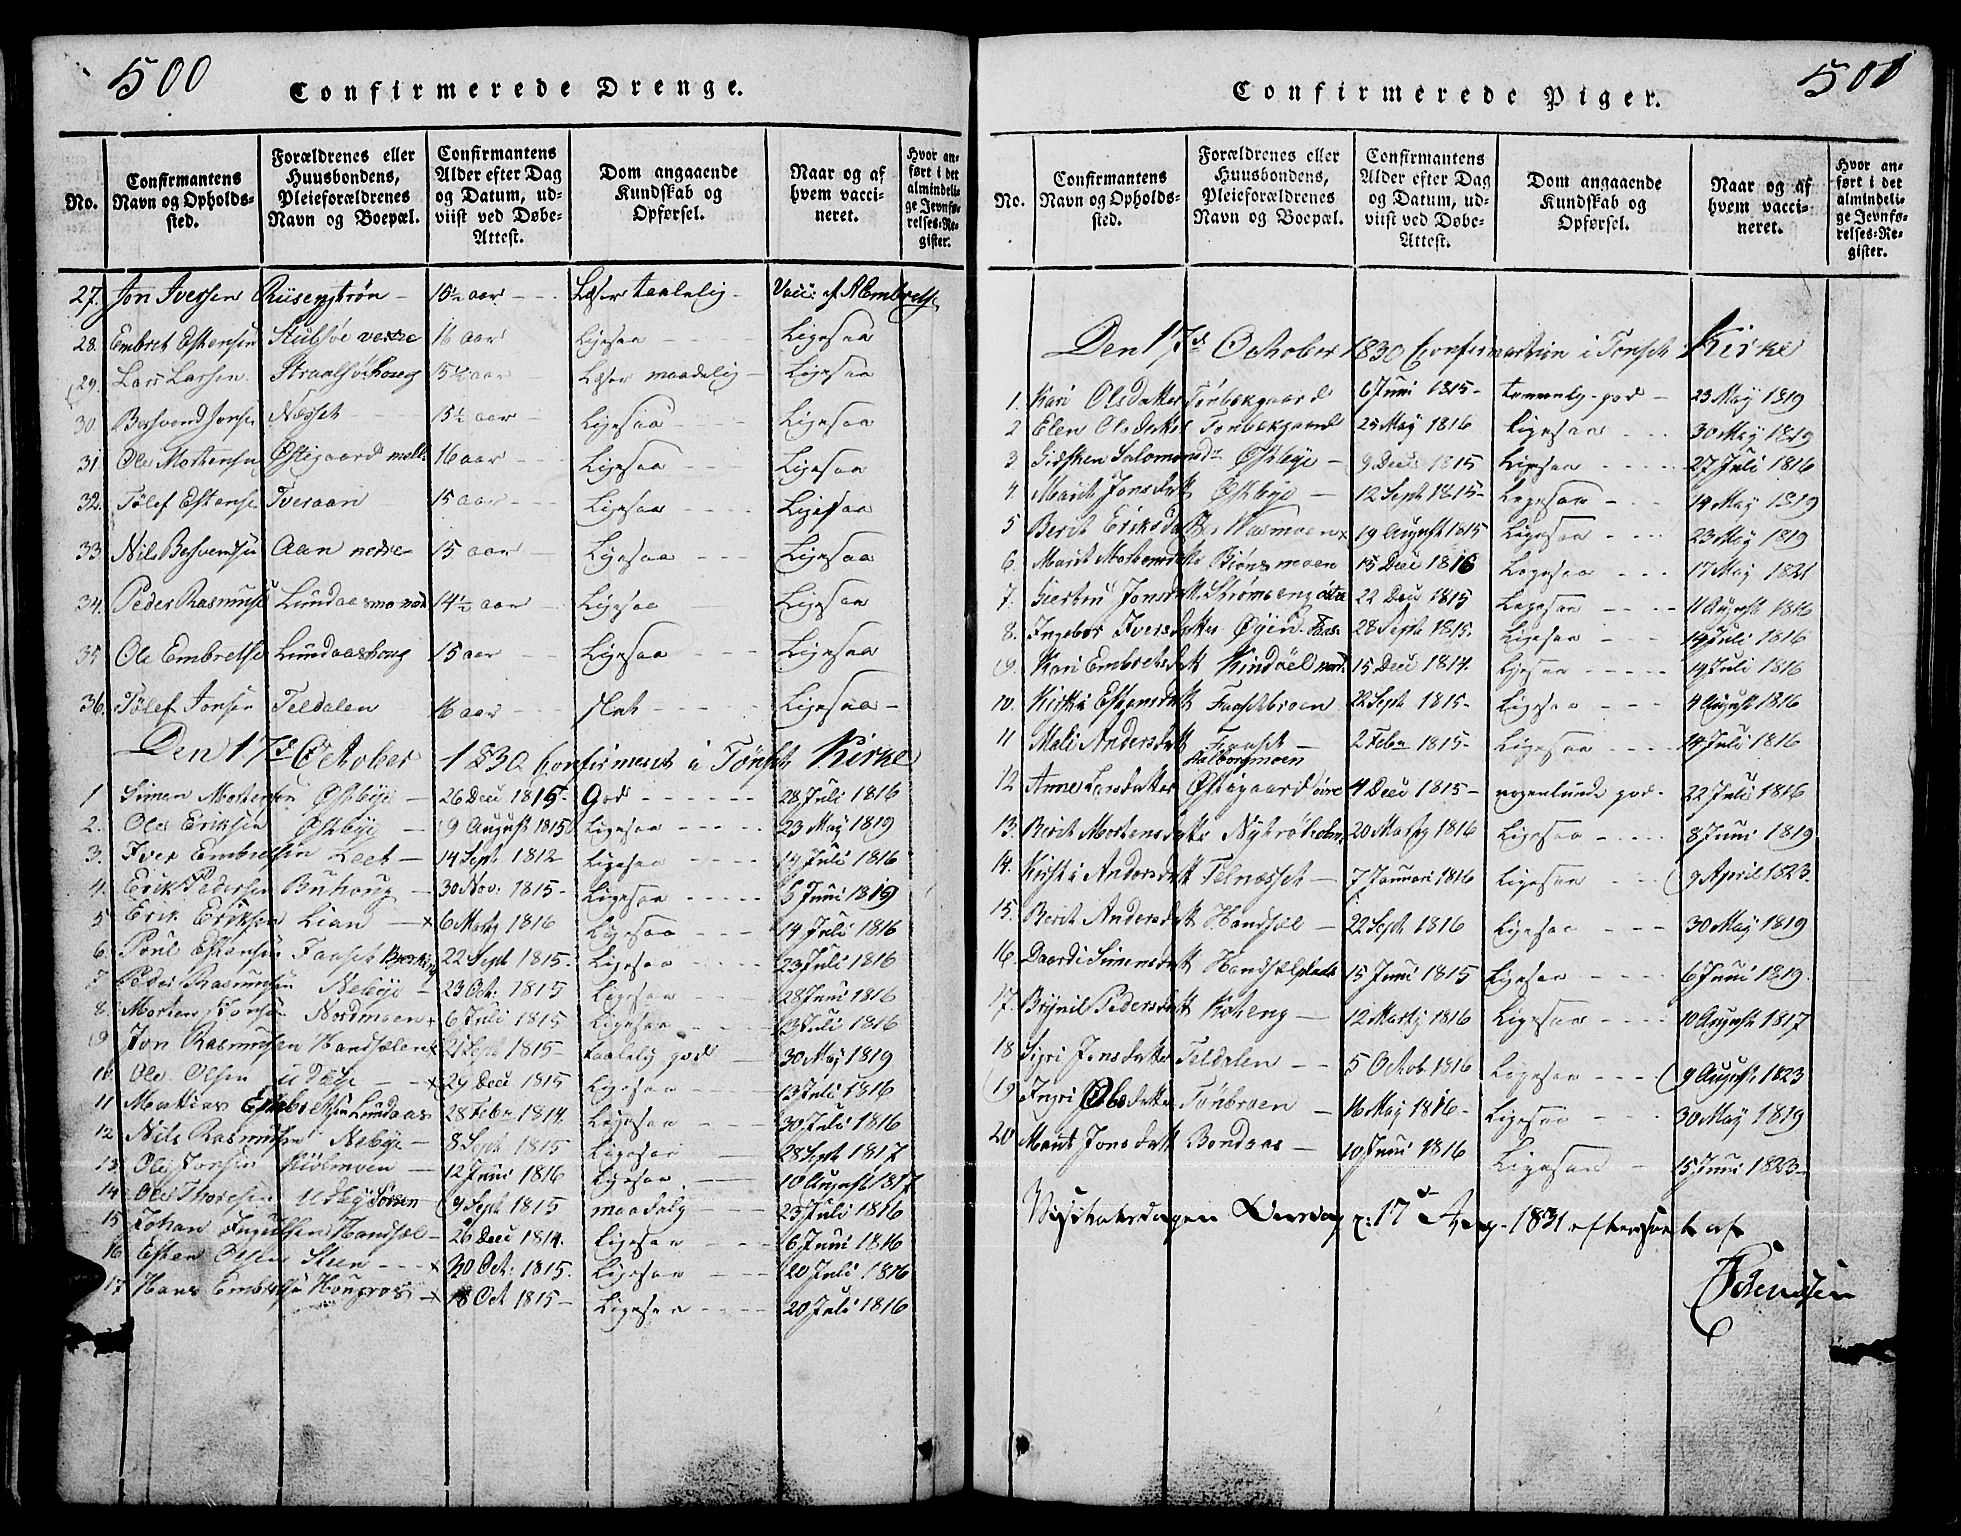 500
Confirmerede Drenge.
No.
Confirmantens Navn og Opholds-sted.
Forældrenes eller Huusbondens, Pleieforældrenes Navn og Boepæl.
Confirmantens Alder efter Dag og Datum, ud-viist ved Døbe-Attest.
Dom angaaende Kundskab og Opførsel.
Naar og af hvem vacci-neret.
Hvor an-ført i det almindeli-ge Jevnfø-relses-Re-gister.
27. Jon Iversen 15½ aar Læser taalelig
28. Embret Estensen Stubsøe vestre 16 aar Ligesaa Ligesaa
29. Lars Larsen 15½ aar Læser maadelig Ligesaa
30. Næsset 15½ aar Ligesaa Ligesaa
31 Ole Mortensen Østigaard 16 aar Ligesaa Ligesaa
32. Tølef Estense Tveraan 15 aar Ligesaa Ligesaa
33 Nils Aan nedre 15 aar Ligesaa Ligesaa
34. Peder Rasmuse 14½ aar Ligesaa Ligesaa
35 Ole Embretse Lundaashoug 15 aar Ligesaa Ligesaa
36. Tølef Jonsen Teldalen 16 aar slet Ligesaa
Den 17de October 1830 Confirmeret i Tønset Kirke
1 Simen Mortensen Østbye 26 Dec 1815 God 28 Juli 1816
2. Ole Eriksen Østbye 9 August 1815 Ligesaa 23 May 1819
3. Iver Embretsen Leet 14 Sept 1812 Ligesaa 14 Juli 1816
4. Erik Pedersen Buhoug 30 Nov: 1815 Ligesaa 5 Juni 1819
5 Erik Eriksen Lian x 6 Martz 1816 Ligesaa 14 Juli 1816
6. Poul Estensen Faaset 22 Sept 1815 Ligesaa 23 Juli 1816
7. Peder Rasmusen Nebye 23 Oct: 1815 Ligesaa 28 Juni 1816
8. Morten Jonsen Nordmoen x 6 Juli 1815 Ligesaa 13 Juli 1816
9 Jon Rasmusen 21 Sept 1815 taalelig god 30 May 1819
10. Ole Olsen x 29 Dec 1815 Ligesaa 13 Juli 1816
11 Mattias Embretsen Lundaas 28 Febr 1814. Ligesaa 30 Juli 1816
12 Nils Rasmusen Nebye 8 Sept 1815 Ligesaa 28 Sept 1817
13. Ole Jonsen Kiølmoen 12 Juni 1816 Ligesaa 10 August 1817
14 Ole Thoresen 9 Sept 1815 maadelig 23 Juli 1816
15 Johan Ingulfsen Handsæl 26 Dec 1814. Ligesaa 6 Juni 1816
16 Esten Olsen Steen x 20 Oct: 1815. Ligesaa 20 Juli 1816
17 Hans Embretsen x 18 Oct 1815 Ligesaa 20 Juli 1816
501
Confirmerede Piger.
No.
Confirmantens Navn og Opholds-sted.
Forældrenes eller Huusbondens, Pleieforældrenes Navn og Boepæl.
Confirmantens Alder efter Dag og Datum, ud-viist ved Døbe-Attest.
Dom angaaende Kundskab og Opførsel.
Naar og af hvem vacci-neret.
Hvor an-ført i det almindeli-ge Jevnfø-relses-Re-gister.
Den 17de October 1830 Confirmation i Tønset Kirke
1. Kari Olsdatter Tønbækgaard 6 Juni 1815 temmelig god 23 May 1819
2 Elen Olsdatter Tønbækgaard 25 May 1816 Ligesaa 30 May 1819
3 Solomonsdr Østbye 9 Dec 1815 Ligesaa 27 Juli 1816
4. Marit Jonsdatt Østbye 12 Sept 1815 Ligesaa 14 May 1819
5 Berit Eriksdatter x 19 August 1815 Ligesaa 23 May 1819
6. Marit Mortensdatter Biønsmoen 15 Dec 1816 Ligesaa 17 May 1821
7. Jonsdatt 22 Dec 1815 Ligesaa 11 August 1816
8. Ingebor Iversdatter Øien 28 Sept 1815. Ligesaa 14 Juli 1816
9. Kari Embretsdatt Kindøel 15 Dec 1814. Ligesaa 14 Juli 1816
10. Kirsti Estensdatt Faasetbroen 22 Sept 1815 Ligesaa 4 August 1816
11 Mali Andersdatt Faaset 2 Febr 1815 Ligesaa 14 Juli 1816
Aalborgmoen
12 Anne Larsdatter Østigaard øvre 4 Dec 1815 nogenlunde god. 22 Juli 1816
13. Berit Mortensdatter 20 Martz 1816 Ligesaa 8 Juni 1819
14. Kirsti Andersdatt Telnesset 7 Januari 1816 Ligesaa 9 April 1823.
15. Berit Andersdatt Handsæl 22 Sept 1816 Ligesaa 30 May 1819
16 Daardi Simensdatt 15 Juni 1815 Ligesaa 6 Juni 1819.
17. Brynil Pedersdatt Koteng 12 Martz 1816 Ligesaa 10 August 1817
18 Sigri Jonsdatter Teldalen 5 Octob. 1816 Ligesaa 9 August 1823
19. Ingri Olsdatter Tønbroen 16 May 1816 Ligesaa 30 May 1819
20 Marit Jonsdatt Bondaas 10 Juni 1816 Ligesaa 15 Juni 1823
17de Aug. 1831 efterseet af